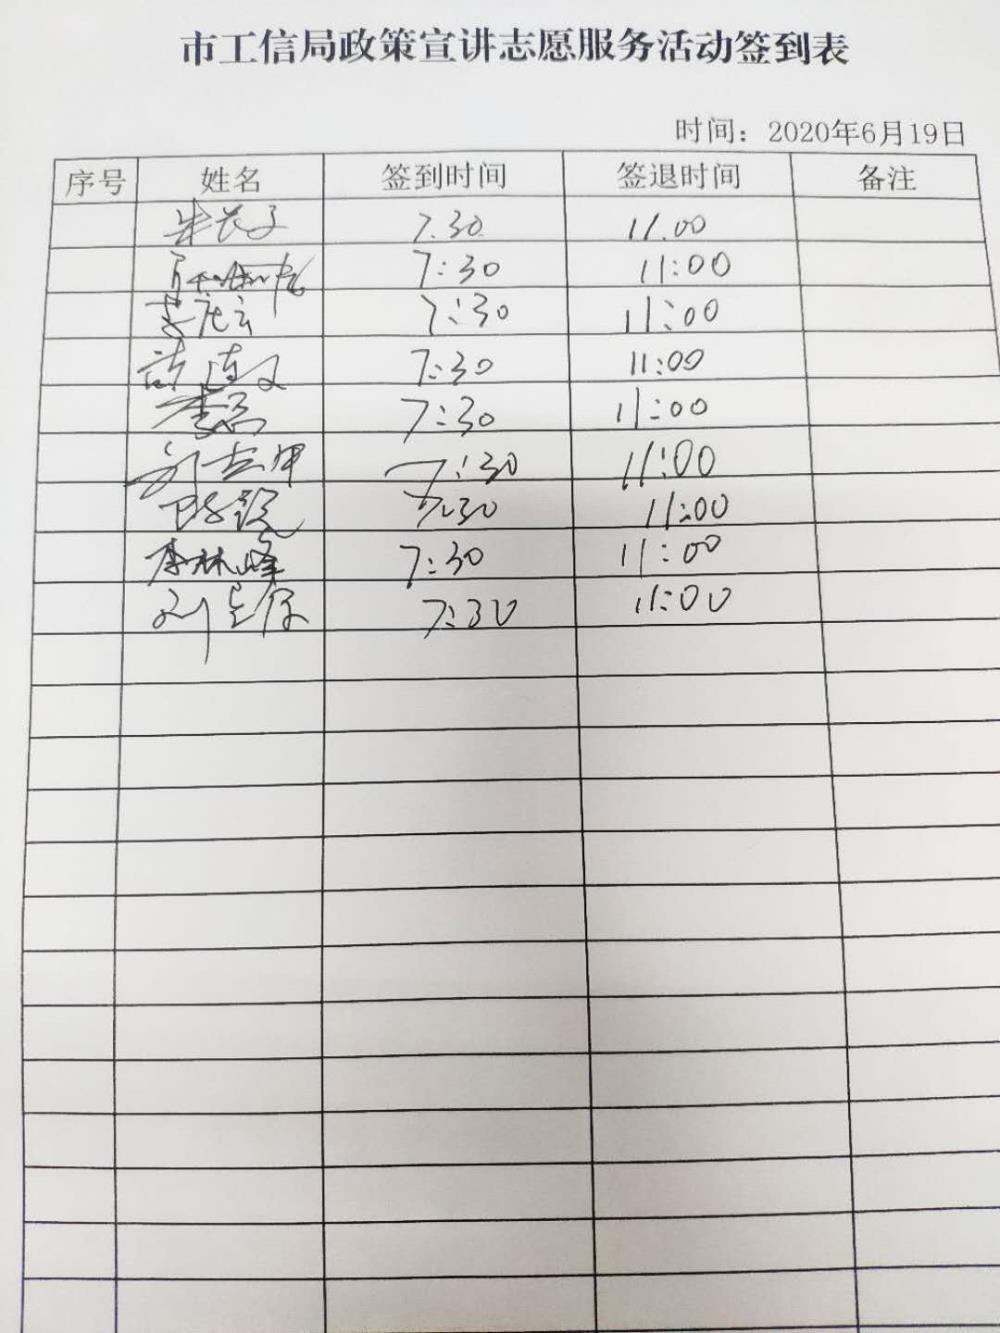 市工信局政策宣讲志愿服务活动签到表
时间：2020年6月19日
序号 姓名 签到时间 签退时间 备注
7.30 11.00
7:30 11:00
7:30 11:00
7:30 11:00
李 7:30 11:00
7:30 11:00
7:30 11:00
李林峰 7:30 11:00
刘 7:30 11:00